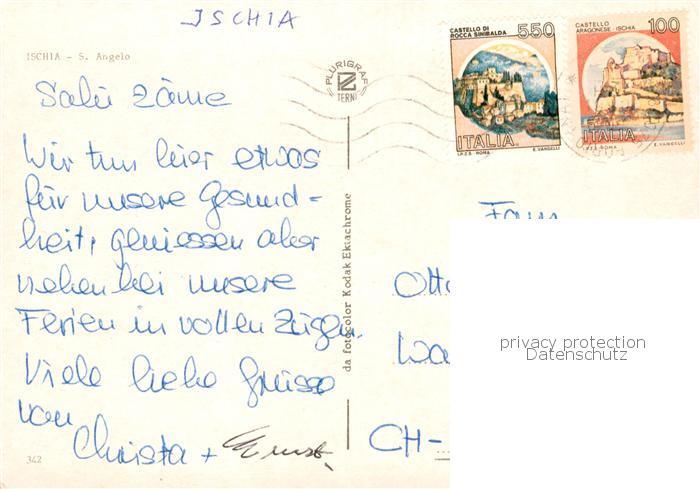 ISCHIA
ISCHIA - S. Angelo
Salü zäme
Wir tun hier etwas
für unsere Gesund-
heit, geniessen aber
nebenbei unsere
Ferien in vollen Zügen.
Viele liebe Grüsse
von
Christa + Ernst.
342
PLURIGRAF
TERNI
da fotocolor Kodak Ektachrome
CASTELLO DI
ROCCA SINIBALDA 550
ITALIA
I.P.Z.S. - ROMA E. VANGELLI
CASTELLO
ARAGONESE - ISCHIA 100
ITALIA
I.P.Z.S. - ROMA E. VANGELLI
Fam
Otto
CH-
privacy protection
Datenschutz